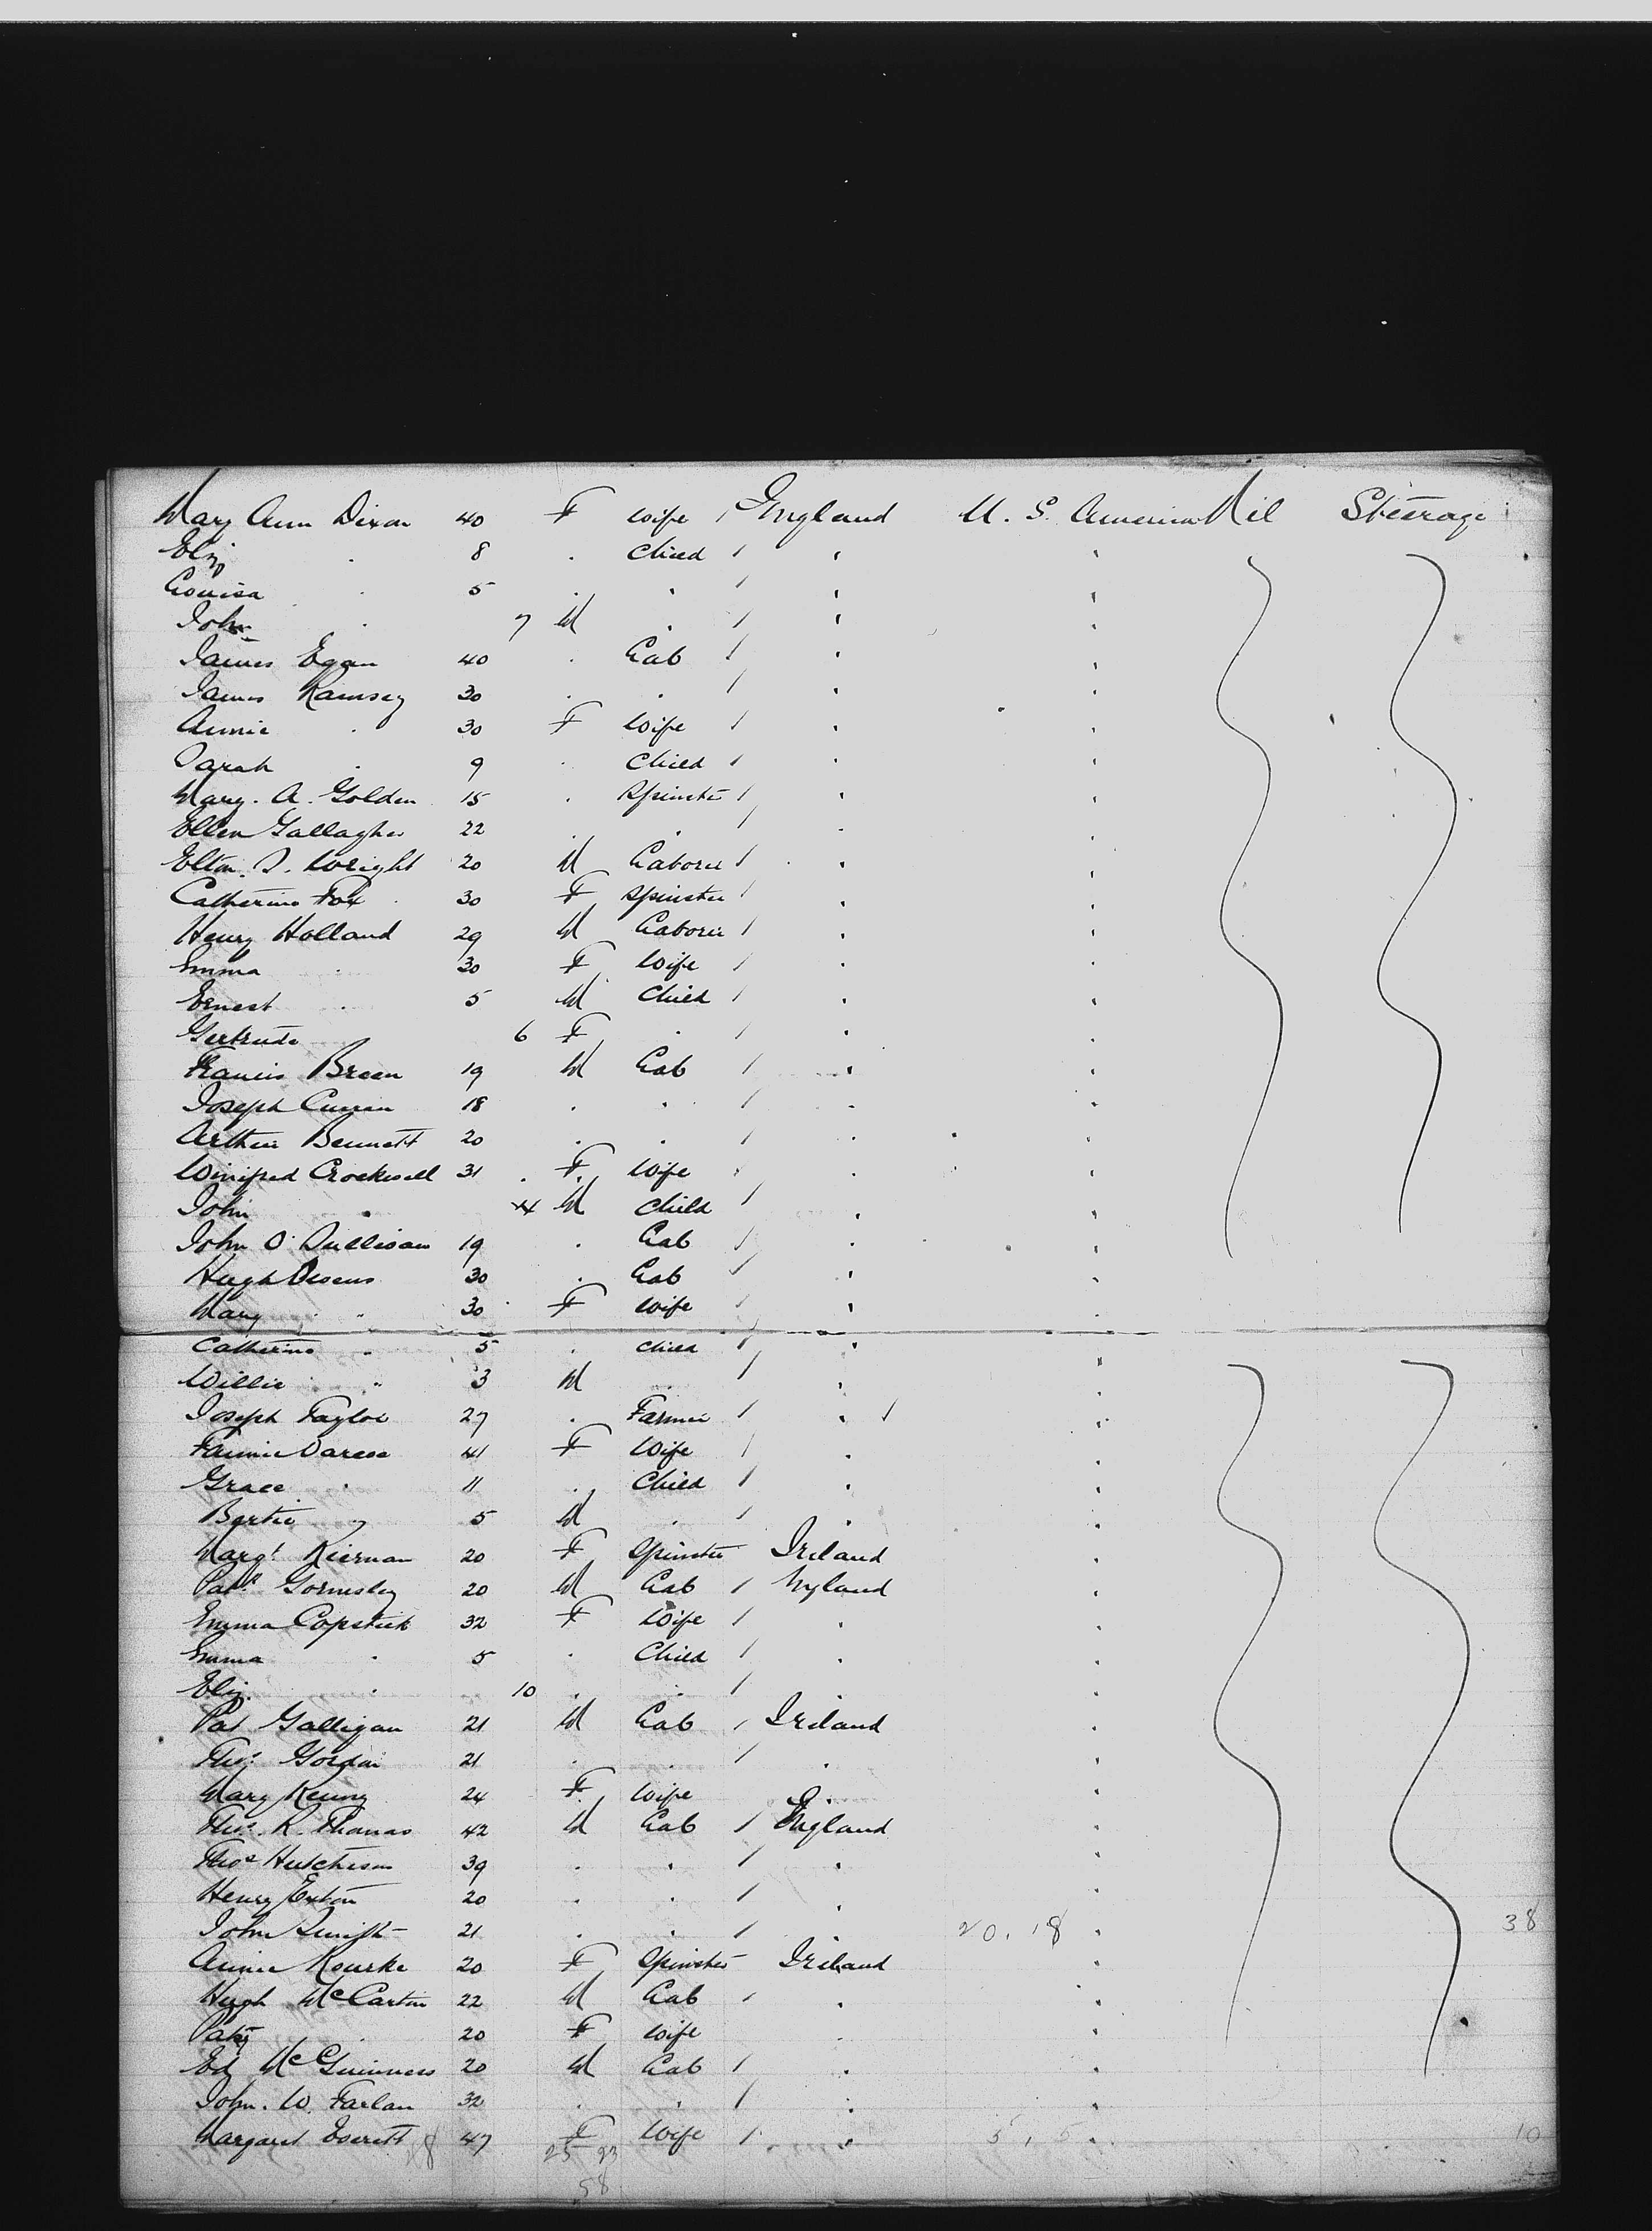 Mary Ann Dixon 40 F Wife / England U. S. America Nil Steerage
Eliz . 8 . Child / " "
Louisa . 5 . . / " "
John . 7 M . / " "
James Egan 40 . Lab / " "
James Ramsey 30 . . / " "
Annie . 30 F Wife / " "
Sarah . 9 . Child / " "
Mary. A. Golden 15 . Spinster / " "
Ellen Gallagher 22 . . / " "
S. Wright 20 M Laborer / " "
Catherine Fox 30 F Spinster / " "
Henry Holland 29 M Laborer / " "
Emma . 30 F Wife / " "
Ernest . 5 M Child / " "
Gertrude 6 F . / " "
Francis Breen 19 M Lab / " "
Joseph Curran 18 . . / " "
Arthur Bennett 20 . . / " "
Winifred Crockwell 31 F Wife / " "
John . M Child / " "
John O'Sullivan 19 . Lab / " "
Hugh 30 . Lab / " "
Mary " 30 F Wife / " "
Catherine " 5 . Child / " "
Willie " 3 M . / " "
Joseph Taylor 27 . Farmer / " / "
Fannie 41 F Wife / " "
Grace " 11 . Child / " "
Bertie " 5 M . / " "
Margt Kiernan 20 F Spinster Ireland "
Patk Gormsley 20 M Lab / England "
Emma Copstick 32 F Wife / " "
Emma . 5 . Child / " "
Eliz . 10 . . / " "
Pat Galligan 21 M Lab / Ireland "
Thos Gordon 21 . . / " "
Mary Kenny 24 F Wife " "
Thos. R. Thomas 42 M Lab / England "
Thos Hutchison 39 . . / " "
Henry Exton 20 . . / " "
John Swift 21 . . / " 20, 18 " 38
Annie Rourke 20 F Spinster Ireland "
Hugh McCartin 22 M Lab / " "
Patk . 20 F Wife " "
Ed McGuinness 20 M Lab / " "
John. W. Farlan 32 . . / " "
Margaret Everett 47 F Wife / " 5, 5 " 10
48 25 23
58